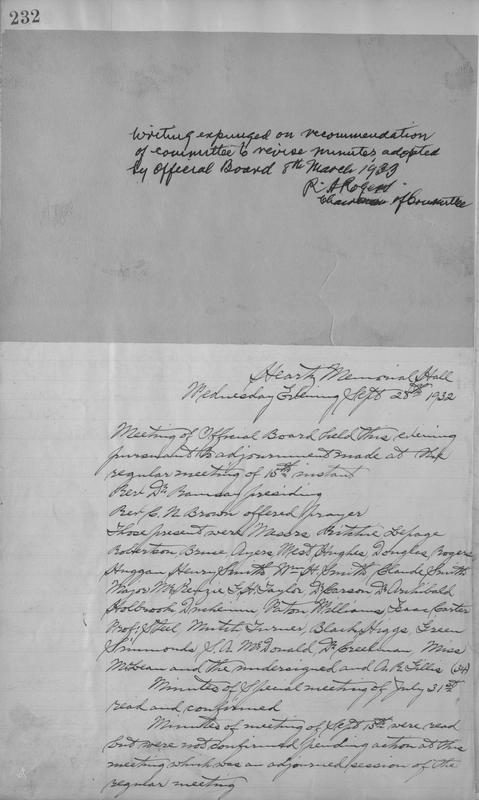 232
Writing expunged on recommendation
of committee to revise minutes adopted
by Official Board 8th March 1933
R. A. Rogers
Chairman of Committee
Heartz Memorial Hall
Wednesday Evening Sept 28th 1932
Meeting of Official Board held this evening
pursuant to adjournment made at the
regular meeting of 15th instant
Rev Dr Ramsay presiding
Rev C. N. Brown offered prayer
Those present were Messrs Ritchie Lepage
Robertson, Bruce, Ayers, West, Hughes, Douglas, Rogers
Huggan, Henry Smith, Wm H. Smith, Claude Smith
Major McKenzie, T. H. Taylor, Dr Carson, Dr Archibald
Holbrook, Piton, Williams, Isaac Carter
Prof. Steel, Mutch, Turner, Black, Higgs, Green
Simmonds, S. A. McDonald, Dr Creelman, Miss
McLean and the undersigned and A. E. Ellis (34)
Minutes of Special meeting of July 31st
read and confirmed
Minutes of meeting of Sept 15th were read
but were not confirmed pending action at this
meeting which was an adjourned session of the
regular meeting